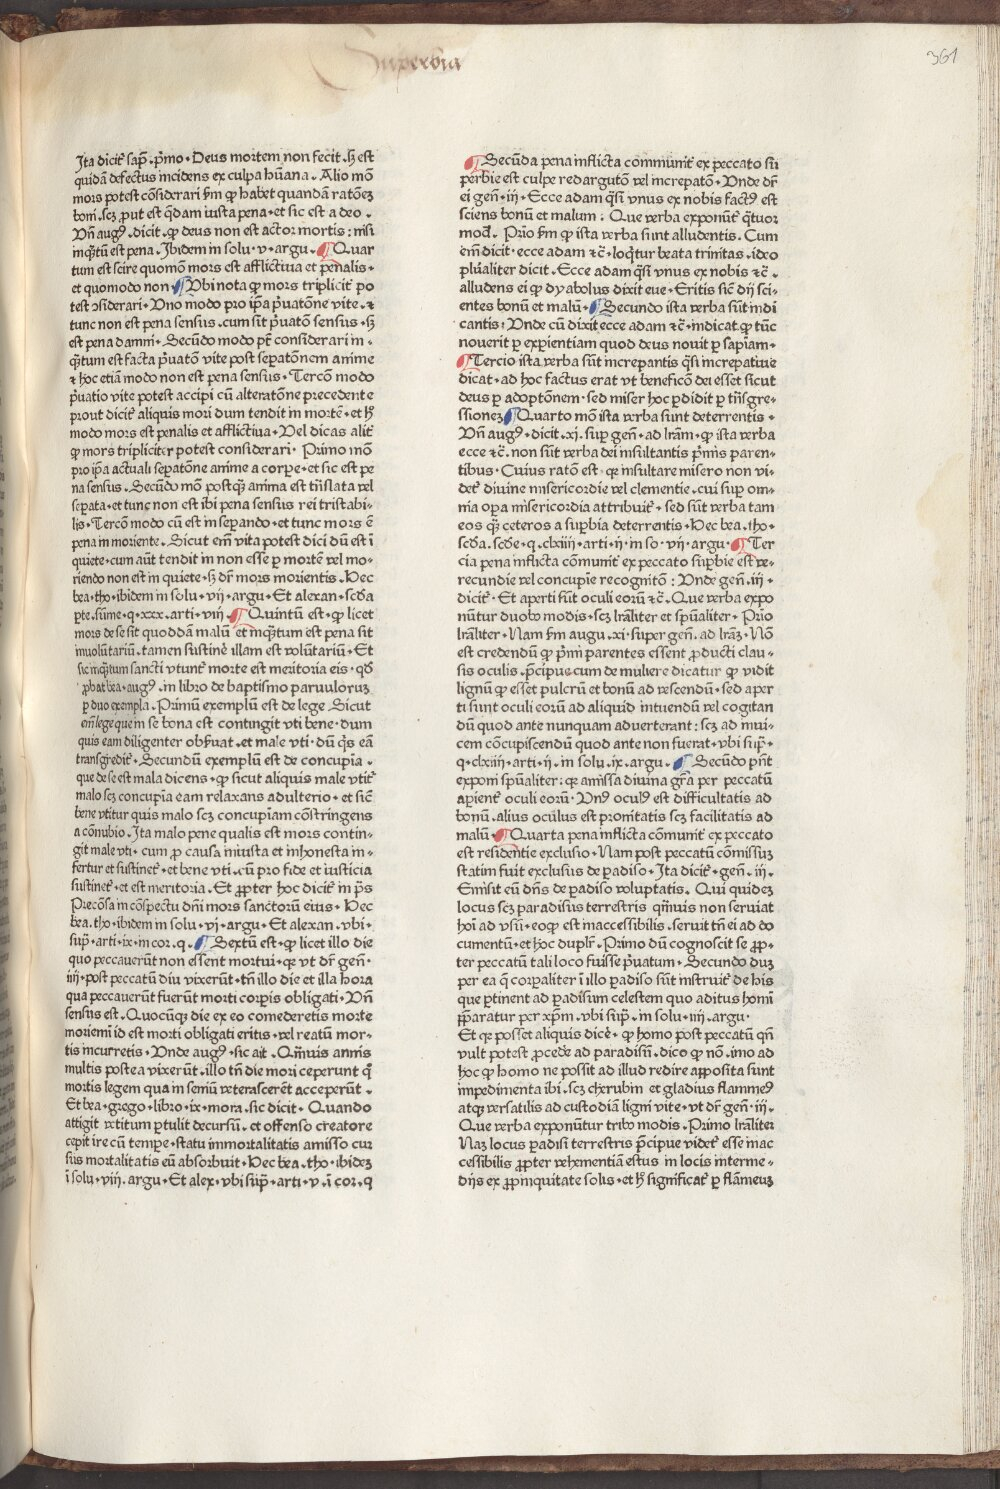 Superbia
361
Ita dicit᷑ sap̄. p̄mo. Deus mortem non fecit. sꝫ est
quidā defectus incidens ex culpa hūana. Alio mō
mors potest cōsiderari s̄m ꝙ habet quandā ratōeꝫ
boni. scꝫ ꝓut est q̄dam iusta pena. et sic est a deo.
Vn̄ augꝰ. dicit. ꝙ deus non est actor mortis: nisi
inqꝫtū est pena. Ibidem in solu. v. argu. ¶ Quar
tum est scire quomō mors est afflictiua et penalis.
et quomodo non ¶ Vbi nota ꝙ mors triplicit᷑ po
test ꝯsiderari. Vno modo pro ip̄a p̄uatōne vite. ⁊
tunc non est pena sensus. cum sit p̄uatō sensus. sꝫ
est pena damni. Secūdo modo pt̄ considerari in-
qꝫtum est facta p̄uatō vite post seꝑatōnem anime
⁊ hoc etiā modo non est pena sensus. Tercō modo
p̄uatio vite potest accipi cū alteratōne precedente
prout dicit᷑ aliquis mori dum tendit in mortē. et h̄
modo mors est penalis et afflictiua. Vel dicas alit᷑
ꝙ mors tripliciter potest considerari. Primo mō
pro ip̄a actuali seꝑatōne anime a corpe. et sic est pe
na sensus. Secūdo mō postqꝫ anima est trāslata vel
seꝑata. et tunc non est ibi pena sensus rei tristabi-
lis. Tercō modo cū est in seꝑando. et tunc mors ē
pena in moriente. Sicut em̄ vita potest dici dū est ī
quiete. cum aūt tendit in non esse ꝑ mortē vel mo-
riendo non est in quiete. sꝫ dr̄ mors morientis. Hec
bea. tho. ibidem in solu. vij. argu. Et alexan. scd̄a
pte. sūme. q. xxx. arti. viij. ¶ Quintū est. ꝙ licet
mors de se sit quoddā malū et inqꝫtum est pena sit
inuolūtariū. tamen sustinē illam est volūtariū. Et
sic inqꝫtum sancti vtunt᷑ morte est meritoria eis. qd̄
ꝓbat bea. augꝰ. in libro de baptismo paruuloruꝫ
ꝑ duo exempla. Primū exemplū est de lege Sicut
em̄ lege que in se bona est contingit vti bene. dum
quis eam diligenter obseruat. et male vti. dū q̄s eā
transgredit᷑. Secundū exemplū est de concupīa.
que de se est mala dicens. ꝙ sicut aliquis male vtit᷑
malo scꝫ concupīa eam relaxans adulterio. et sic
bene vtitur quis malo scꝫ concupīam cōstringens
a cōnubio. Ita malo pene qualis est mors contin-
git male vti. cum ꝓ causa iniusta et inhonesta in-
fertur et sustinet᷑. et bene vti. cū pro fide et iusticia
sustinet᷑. et est meritoria. Et ꝓpter hoc dicit᷑ in p̄s
Precōsa in cōspectu dn̄i mors sanctorū eius. Hec
bea. tho. ibidem in solu. vj. argu. Et alexan. vbi.
sup̄. arti. ix. in cor. q. ¶ Sextū est. ꝙ licet illo die
quo peccauerūt non essent mortui. qꝛ vt dr̄ gen̄.
iiij. post peccatū diu vixerūt. tn̄ illo die et illa hora
qua peccauerūt fuerūt morti corꝑis obligati. Vn̄
sensus est. Quocūqꝫ die ex eo comederetis morte
moriemī id est morti obligati eritis. vel reatū mor-
tis incurretis. Vnde augꝰ. sic ait. Quis annis
multis postea vixerūt. illo tn̄ die mori ceperunt q̄
mortis legem qua in seniū veterascerēt acceperūt.
Et bea. grego. libro. ix. mora. sic dicit. Quando
attigit vetitum ꝑtulit decursū. et offenso creatore
cepit ire cū tempe. statu immortalitatis amisso cur
sus mortalitatis eū absorbuit. Hec bea. tho. ibideꝫ
ī solu. viij. argu. Et alex. vbi sup̄. arti. v. ī cor. q
¶ Secūda pena inflicta communit᷑ ex peccato su
perbie est culpe redargutō vel increpatō. Vnde dr̄
ei gen̄. iij. Ecce adam q̄si vnus ex nobis factꝰ est
sciens bonū et malum: Que verba exponūt᷑ q̄tuor
mod̄. Prīo s̄m ꝙ ista verba sunt alludentis. Cum
em̄ dicit. ecce adam ⁊c̄. loq̄tur beata trinitas. ideo
plūaliter dicit. Ecce adam q̄si vnus ex nobis ⁊c̄.
alludens ei ꝙ dyabolus dixit eue. Eritis sic dij sci-
entes bonū et malū. ¶ Secundo ista verba sūt indi
cantis: Vnde cū dixit ecce adam ⁊c̄. indicat. ꝙ tūc
nouerit ꝑ exꝑientiam quod deus nouit ꝑ sapīam.
¶ Tercio ista verba sūt increpantis q̄si increpatiue
dicat. ad hoc factus erat vt beneficō dei esset sicut
deus ꝑ adoptōnem. sed miser hoc ꝑdidit ꝑ trāsgre-
ssioneꝫ ¶ Quarto mō ista verba sunt deterrentis.
Vn̄ augꝰ. dicit. xi. suꝑ gen̄. ad lr̄am. ꝙ ista verba
ecce ⁊c̄. non sūt verba dei insultantis p̄mis paren-
tibus. Cuius ratō est. qꝛ insultare misero non vi-
det᷑ diuine misericordie vel clementie. cui suꝑ om-
nia oꝑa misericordia attribuit᷑. sed sūt verba tam
eos qꝫ ceteros a suꝑbia deterrentis. Hec bea. tho.
scd̄a. scd̄e. q. clxiiij. arti. ij. in so. vij. argu. ¶ Ter
cia pena inflicta cōmunit᷑ ex peccato suꝑbie est ve-
recundie vel concupīe recognitō: Vnde gen̄. iij.
dicit᷑. Et aperti sūt oculi eorū ⁊c̄. Que verba expo
nūtur duobꝰ modis. scꝫ lr̄aliter et spūaliter. Prīo
lr̄aliter. Nam s̄m augu. xi. super gen̄. ad lr̄aꝫ. Nō
est credendū ꝙ p̄mi parentes essent ꝓducti clau-
sis oculis. p̄cipue cum de muliere dicatur ꝙ vidit
lignū ꝙ esset pulcrū et bonū ad vescendū. sed aper
ti sunt oculi eorū ad aliquid intuendū vel cogitan
dū quod ante nunquam aduerterant: scꝫ ad inui-
cem cōcupiscendū quod ante non fuerat. vbi sup̄.
q. clxiiij. arti. ij. in solu. ix. argu. ¶ Secūdo pn̄t
exponi spūaliter: qꝛ amissa diuina gr̄a per peccatū
apient᷑ oculi eorū. Vnꝰ oculꝰ est difficultatis ad
bonū. alius oculus est pronitatis scꝫ facilitatis ad
malū. ¶ Quarta pena inflicta cōmunit᷑ ex peccato
est residentie exclusio. Nam post peccatū cōmissuꝫ
statim fuit exclusus de ꝑadiso. Ita dicit᷑. gen̄. iij.
Emisit eū dn̄s de ꝑadiso voluptatis. Qui quideꝫ
locus scꝫ paradisus terrestris qꝫuis non seruiat
hoī ad vsū. eo ꝙ est inaccessibilis. seruit tn̄ ei ad do
cumentū. et hoc duplr̄. Primo dū cognoscit se ꝓp-
ter peccatū tali loco fuisse p̄uatum. Secundo duꝫ
per ea q̄ corꝑaliter ī illo ꝑadiso sūt instruit᷑ de his
que ꝑtinent ad ꝑadisum celestem quo aditus homī
p̄paratur per xp̄m. vbi sup̄. in solu. iiij. argu.
Et qꝛ posset aliquis dicē. ꝙ homo post peccatū qn̄
vult potest ꝓcedē ad paradisū. dico ꝙ nō. imo ad
hoc ꝙ homo ne possit ad illud redire apposita sunt
impedimenta ibi. scꝫ cherubin et gladius flammeꝰ
atqꝫ versatilis ad custodiā ligni vite. vt dr̄ gen̄. iij.
Que verba exponūtur tribꝰ modis. Primo lr̄aliter
Naꝫ locus ꝑadisi terrestris p̄cipue videt᷑ esse inac
cessibilis ꝓpter vehementiā estus in locis interme-
dijs ex ꝓpinquitate solis. et h̄ significat᷑ ꝑ flāmeuꝫ